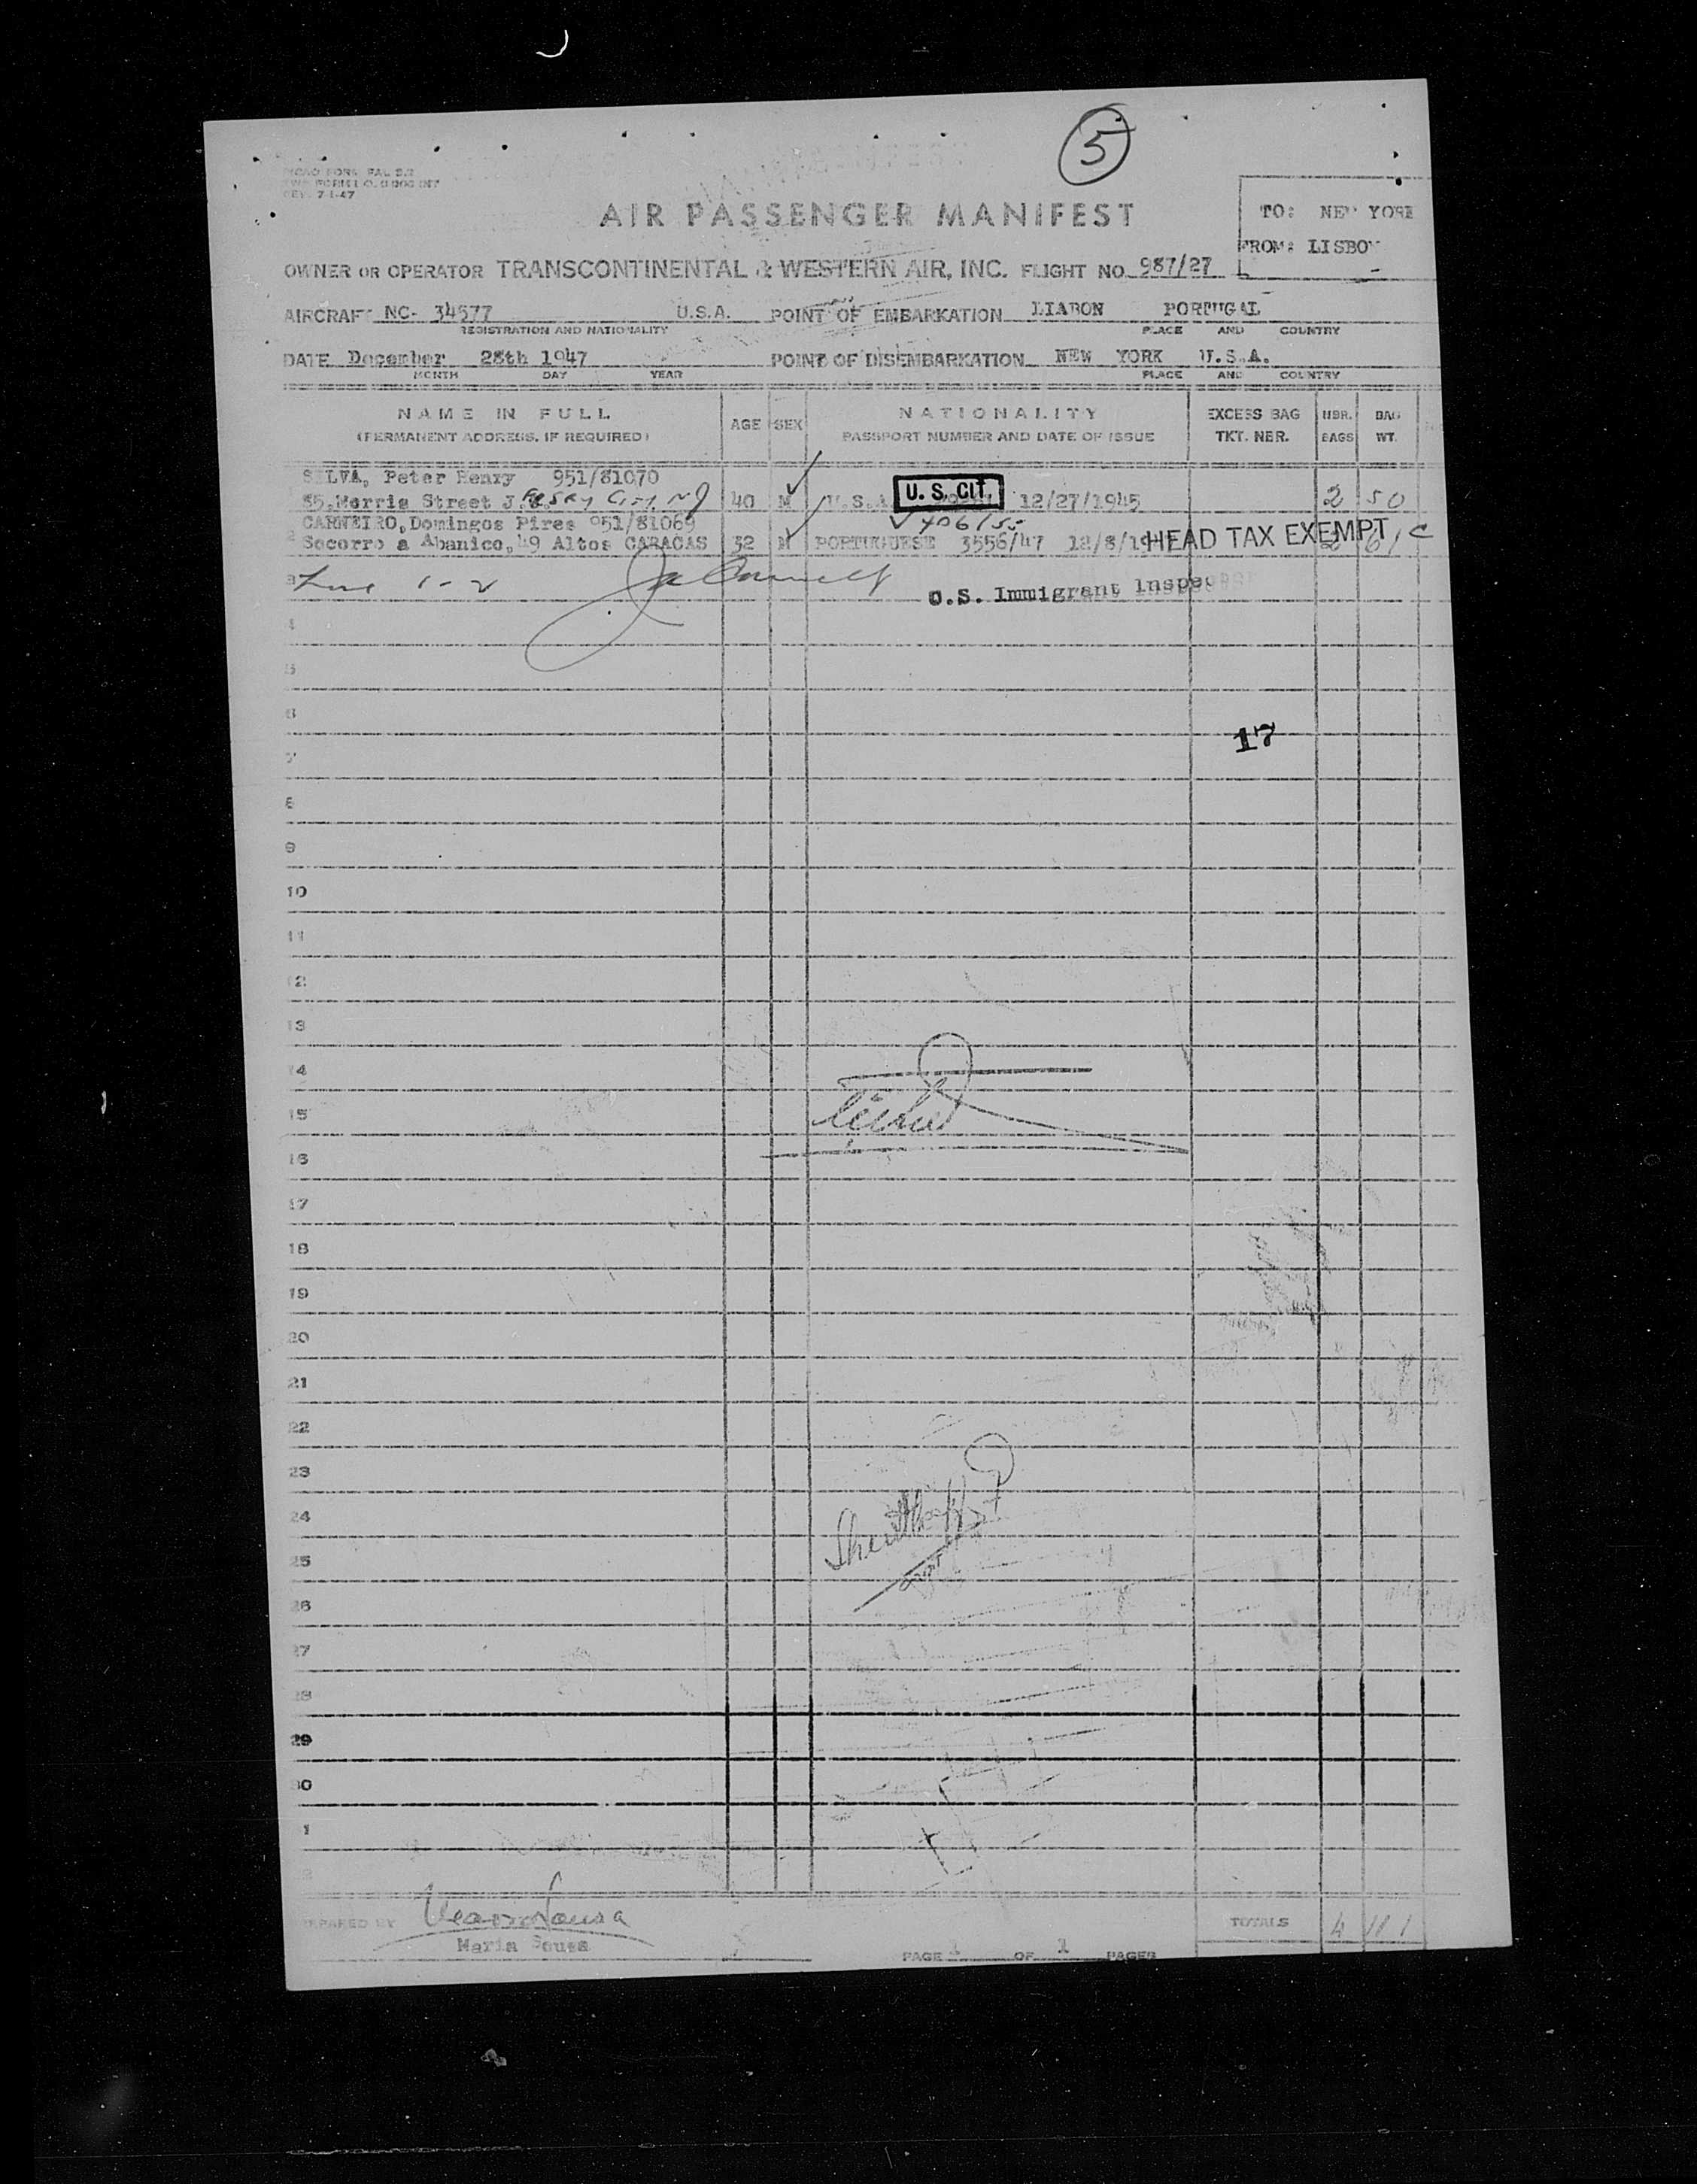 5
ICAO FORM FAL 2.7
REV. 7-1-47
AIR PASSENGER MANIFEST
TO: NEW YORK
FROM: LISBON
OWNER OR OPERATOR TRANSCONTINENTAL & WESTERN AIR, INC. FLIGHT NO. 987/27
AIRCRAFT NC- 34577 U.S.A. POINT OF EMBARKATION LIABON PORTUGAL
REGISTRATION AND NATIONALITY PLACE AND COUNTRY
DATE December 28th 1947 POINT OF DISEMBARKATION NEW YORK U.S.A.
MONTH DAY YEAR PLACE AND COUNTRY
NAME IN FULL AGE SEX NATIONALITY EXCESS BAG NBR. BAG
(PERMANENT ADDRESS, IF REQUIRED) PASSPORT NUMBER AND DATE OF ISSUE TKT. NBR. BAGS WT.
SILVA, Peter Henry 951/81070
85, Morris Street Jersey City NJ 40 M U.S.A. U. S. CIT. 12/27/1945 2 50
CARNEIRO, Domingos Pires 951/81069
2 Socorro a Abanico, 49 Altos CARACAS 32 M PORTUGUESE 3556/47 12/8/19 HEAD TAX EXEMPT 2 61 C
3 1-2 U.S. Immigrant Inspector
4
5
6
17
7
8
9
10
11
12
13
14
15
16
17
18
19
20
21
22
23
24
25
26
27
28
29
30
1
2
PREPARED BY Maria Sousa TOTALS 4 111
Maria Sousa
PAGE 1 OF 1 PAGES